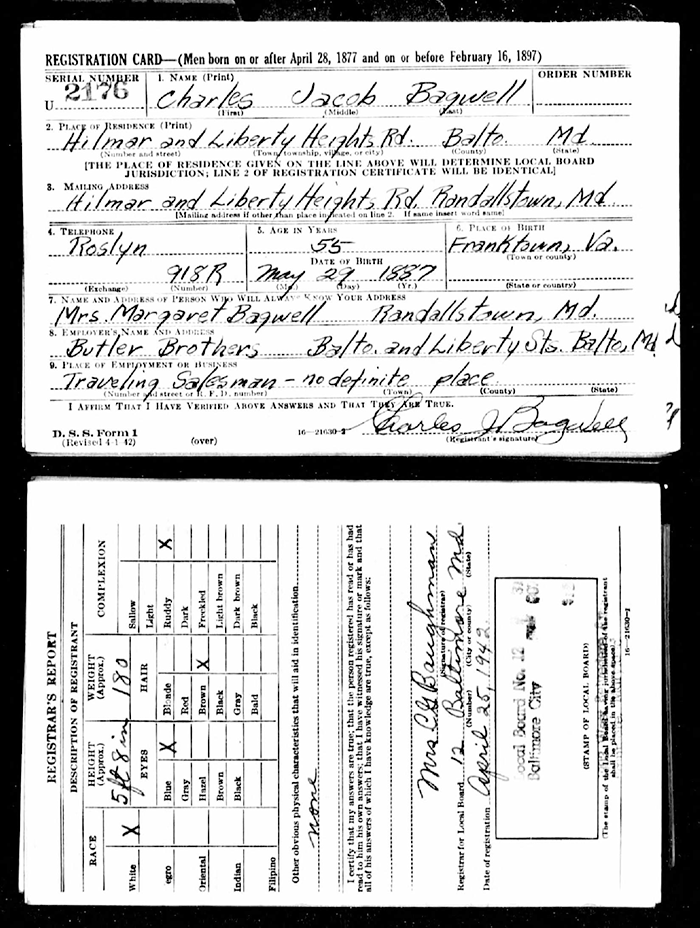 REGISTRATION CARD—(Men born on or after April 28, 1877 and on or before February 16, 1897)
SERIAL NUMBER
1. NAME (Print)
ORDER NUMBER
U 2176
Charles Jacob Bagwell
(First) (Middle) (Last)
2. PLACE OF RESIDENCE (Print)
Hilmar and Liberty Heights Rd. Balto. Md.
(Number and street) (Town, township, village, or city) (County) (State)
[THE PLACE OF RESIDENCE GIVEN ON THE LINE ABOVE WILL DETERMINE LOCAL BOARD
JURISDICTION; LINE 2 OF REGISTRATION CERTIFICATE WILL BE IDENTICAL]
3. MAILING ADDRESS
Hilmar and Liberty Heights Rd. Randallstown, Md.
[Mailing address if other than place indicated on line 2. If same insert word same]
4. TELEPHONE
5. AGE IN YEARS
6. PLACE OF BIRTH
Roslyn
55
Franktown, Va.
(Town or county)
DATE OF BIRTH
918R
May 29 1887
(Exchange) (Number)
(Mo.) (Day) (Yr.)
(State or country)
7. NAME AND ADDRESS OF PERSON WHO WILL ALWAYS KNOW YOUR ADDRESS
Mrs. Margaret Bagwell Randallstown, Md.
8. EMPLOYER'S NAME AND ADDRESS
Butler Brothers Balto. and Liberty Sts. Balto, Md
9. PLACE OF EMPLOYMENT OR BUSINESS
Traveling Salesman - no definite place
(Number and street or R. F. D. number) (Town) (County) (State)
I AFFIRM THAT I HAVE VERIFIED ABOVE ANSWERS AND THAT THEY ARE TRUE.
D. S. S. Form 1
(Revised 4-1-42)
(over)
16—21630-2
Charles J. Bagwell
(Registrant's signature)
REGISTRAR'S REPORT
DESCRIPTION OF REGISTRANT
RACE
HEIGHT (Approx.)
WEIGHT (Approx.)
COMPLEXION
5 ft 8 in
180
EYES
HAIR
White X
Blue X
Blonde
Sallow
Light
egro
Gray
Red
Ruddy X
Dark
Oriental
Hazel
Brown X
Freckled
Light brown
Indian
Brown
Black
Dark brown
Black
Gray
Black
Filipino
Bald
Other obvious physical characteristics that will aid in identification
none
I certify that my answers are true; that the person registered has read or has had
read to him his own answers; that I have witnessed his signature or mark and that
all of his answers of which I have knowledge are true, except as follows:
Mrs C G Baughman
(Signature of registrar)
Registrar for Local Board 12 Baltimore Md.
(Number) (City or county) (State)
Date of registration April 25, 1942
Local Board No. 12
Baltimore City
(STAMP OF LOCAL BOARD)
(The stamp of the Local Board having jurisdiction of the registrant
shall be placed in the above space)
16—21630-1